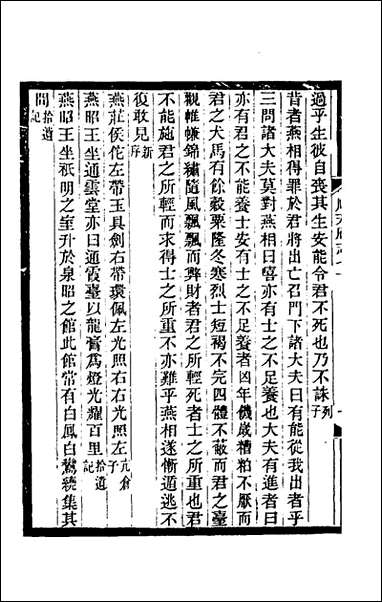 過乎生彼自喪其生安能令君不死也乃不誅列子
昔者燕相得罪於君將出亡召門下諸大夫曰有能從我出者乎
三問諸大夫莫對燕相曰嘻亦有士之不足養也大夫有進者曰
亦有君之不能養士安有士之不足養者凶年饑歲糟粕不厭而
君之犬馬有餘穀粟隆冬寒烈士短褐不完四體不蔽而君之臺
觀帷㡘錦繡隨風飄飄而弊財者君之所輕死者士之所重也君
不能施君之所輕而求得士之所重不亦難乎燕相遂慚遁逃不
復敢見新序
燕莊侯佗左帶玉具劍右帶環佩左光照右右光照左亢倉子
燕昭王坐通雲堂亦曰通霞臺以龍膏爲燈光耀百里拾遺記
燕昭王坐祇明之室升於泉昭之館此館常有白鳳白鸞繞集其
間拾遺記